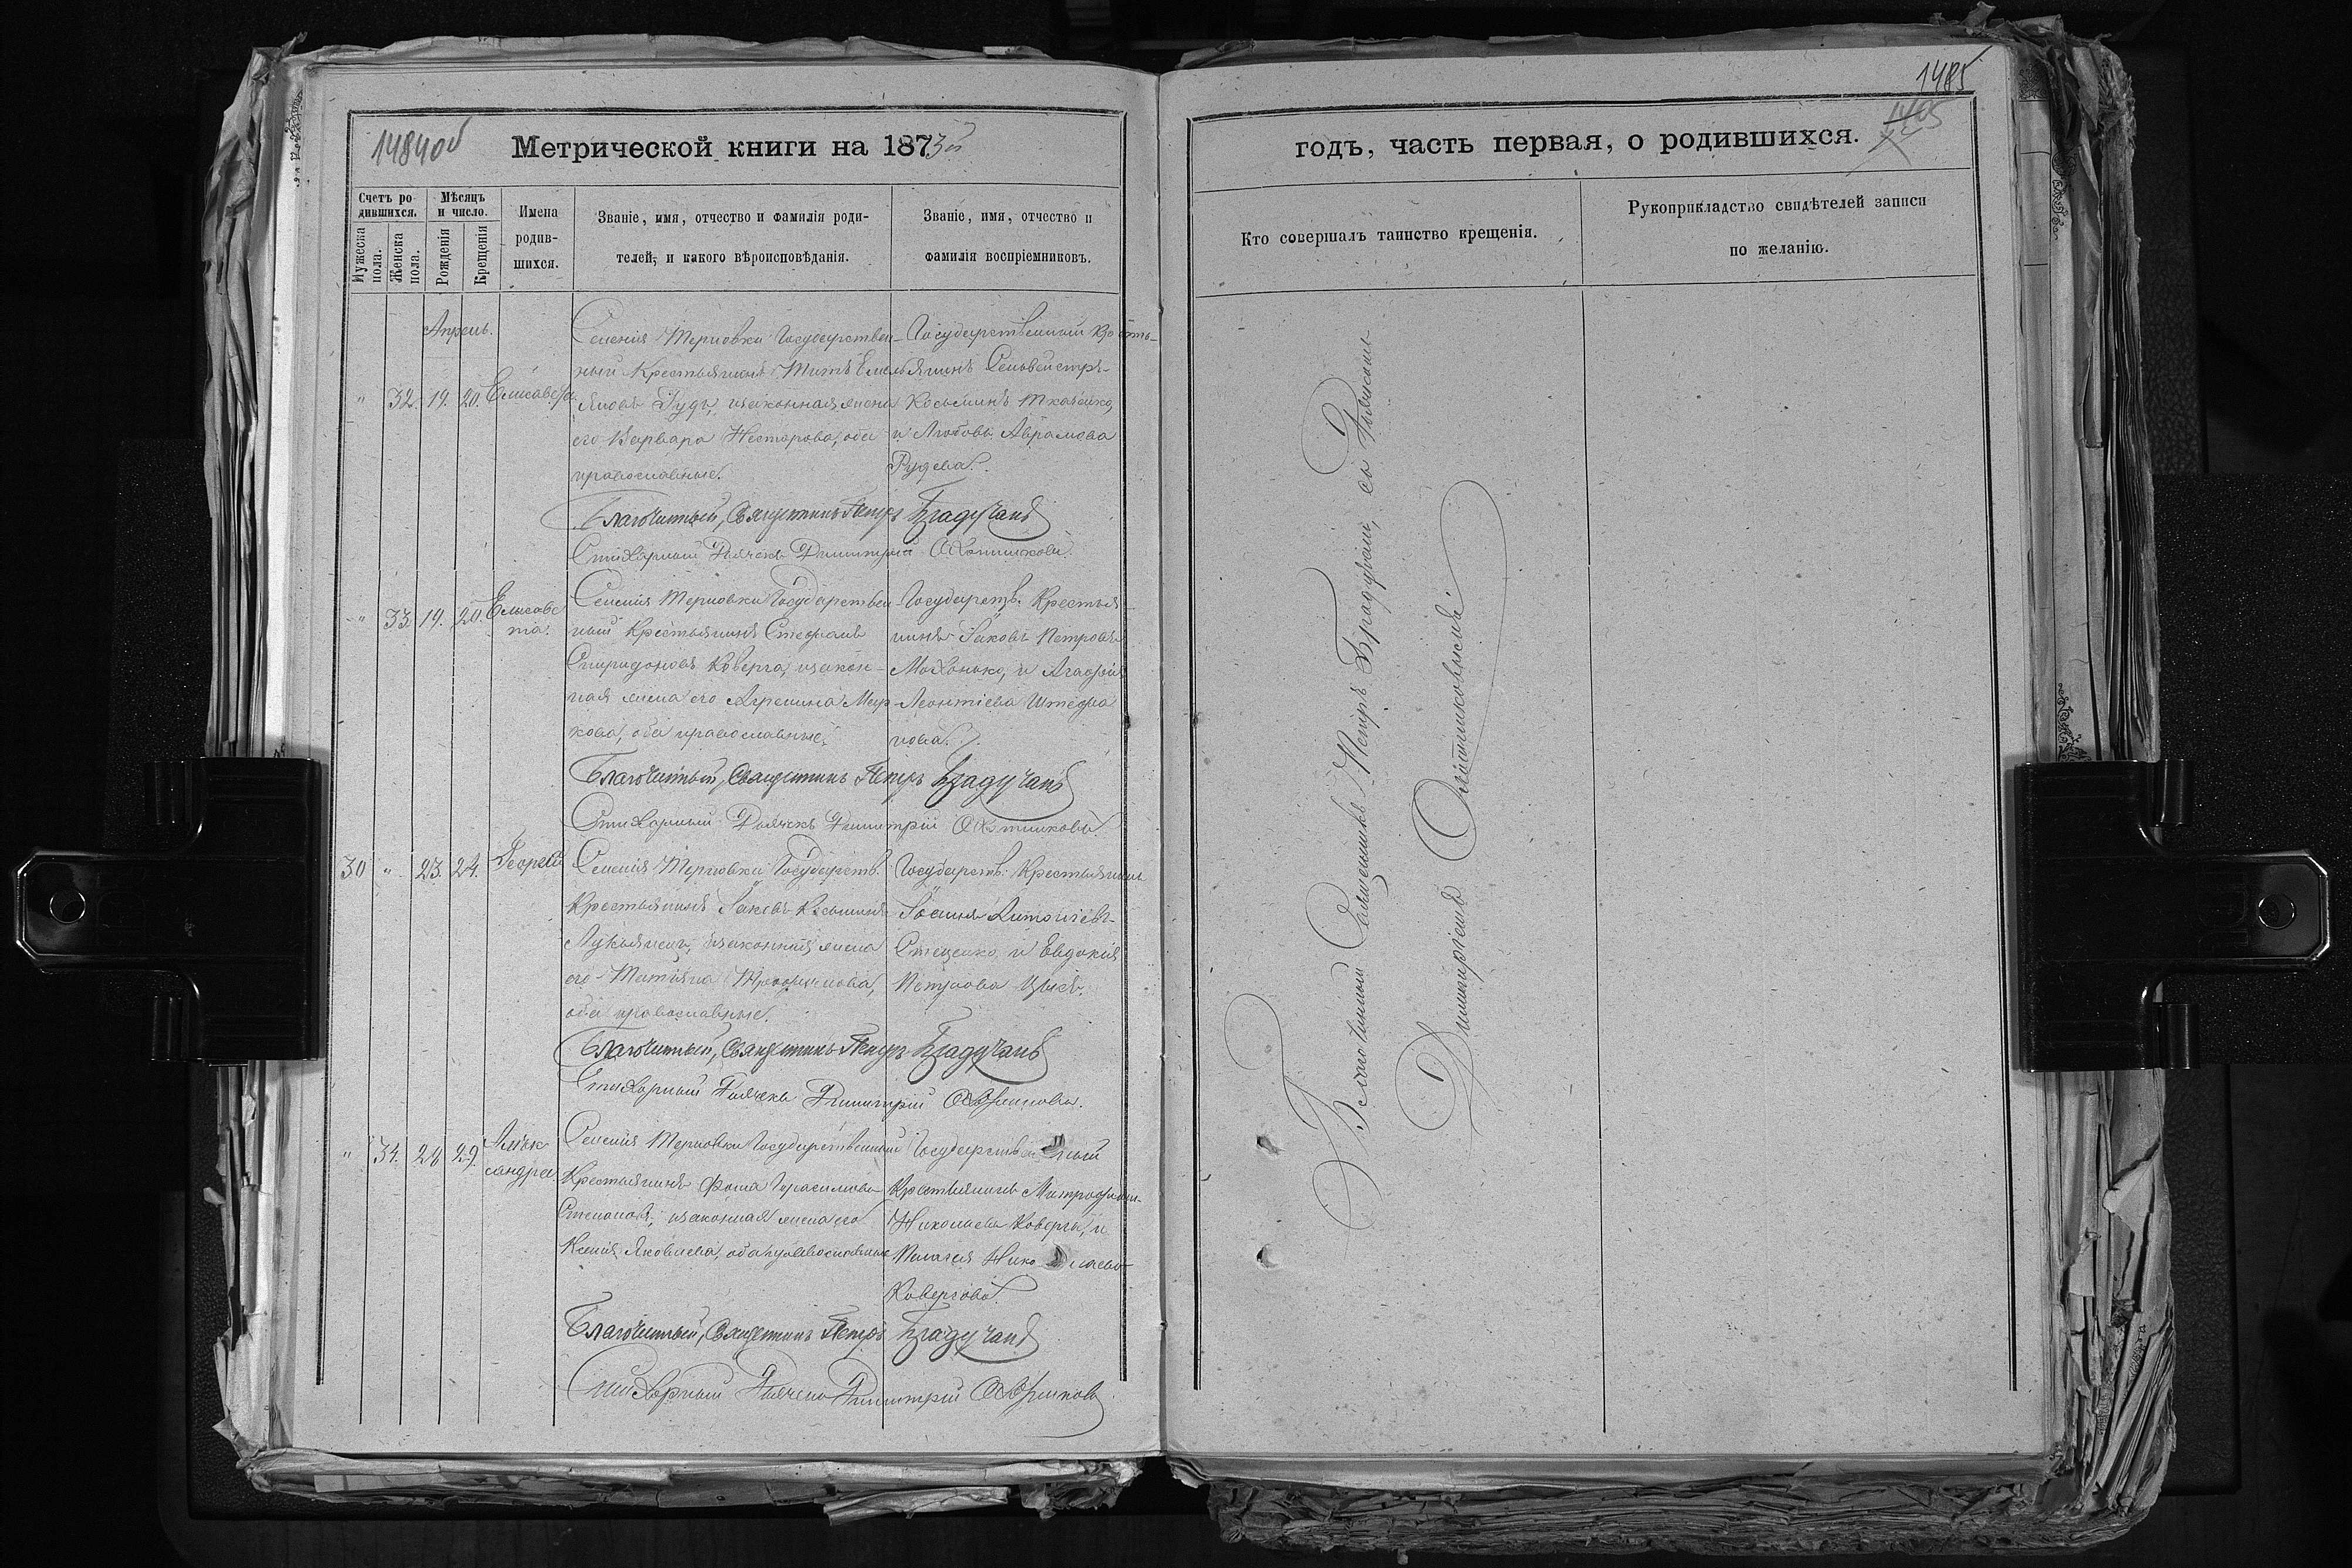 1484об
Метрической книги на 1873й
Счетъ родившихся.
Мужеска пола.
Женска пола.
Мѣсяцъ и число.
Рожденія
Крещенія
Имена родив-
шихся.
Званіе, имя, отчество и фамилія роди-
телей, и какого вѣроисповѣданія.
Званіе, имя, отчество и
фамилія воспріемниковъ.
Апрель.
" 32. 19. 20. Елисавета
Селенія Терновки Государствен-
ный Крестьянинъ Титъ Емель
яновъ Гудъ, изаконная жена
его Варвара Несторова, оба
православные.
Государственный Кресть-
янинъ Сильвестръ
Косьминъ Ткаченко,
и Любовь Аврамова
Рудева.
Благочинный, Священникъ Петръ Брадучанъ
Стихарный Дьячекъ Димитрій Охотниковъ.
" 33. 19. 20. Елисаве
та.
Селенія Терновки Государствен-
ный Крестьянинъ Стефанъ
Спиридоновъ Коверга, изакон-
ная жена его Агрепина Мар-
кова, оба православные.
Государств. Крестья
нинъ Іаковъ Петровъ
Махонько, и Агафія
Леонтіева Штефа
нова.
Благочинный, Священникъ Петръ Брадучанъ
Стихарный Дьячекъ Димитрій Охотниковъ.
30 " 23. 24. Георгій
Селенія Терновки Государств.
Крестьянинъ Іаковъ Косьминъ
Лукьянецъ, изаконная жена
его Татіяна Трофимова,
оба православные.
Государств. Крестьянинъ
Іоаннъ Антоніевъ
Стеценко, и Евдокія
Петрова
Благочинный, Священникъ Петръ Брадучанъ
Стихарный Дьячекъ Димитрій Охотниковъ.
" 34. 28 29. Алек
сандра
Селенія Терновки Государственный
Крестьянинъ Фома Герасимовъ
Степановъ, изаконная жена его
Ксенія Яковлева, оба православные
Государственный
Крестьянинъ Митрофанъ
Николаевъ Коверга, и
Пелагея Николаева
Ковергова.
Благочинный, Священникъ Петръ Брадучанъ
Стихарный Дьячекъ Димитрій Охотниковъ
1485
1405
годъ, часть первая, о родившихся.
Кто совершалъ таинство крещенія.
Рукоприкладство свидѣтелей записи
по желанію.
Благочинный Священникъ Петръ Брадучанъ, съ Дьячкомъ
Димитріемъ Охотниковымъ.